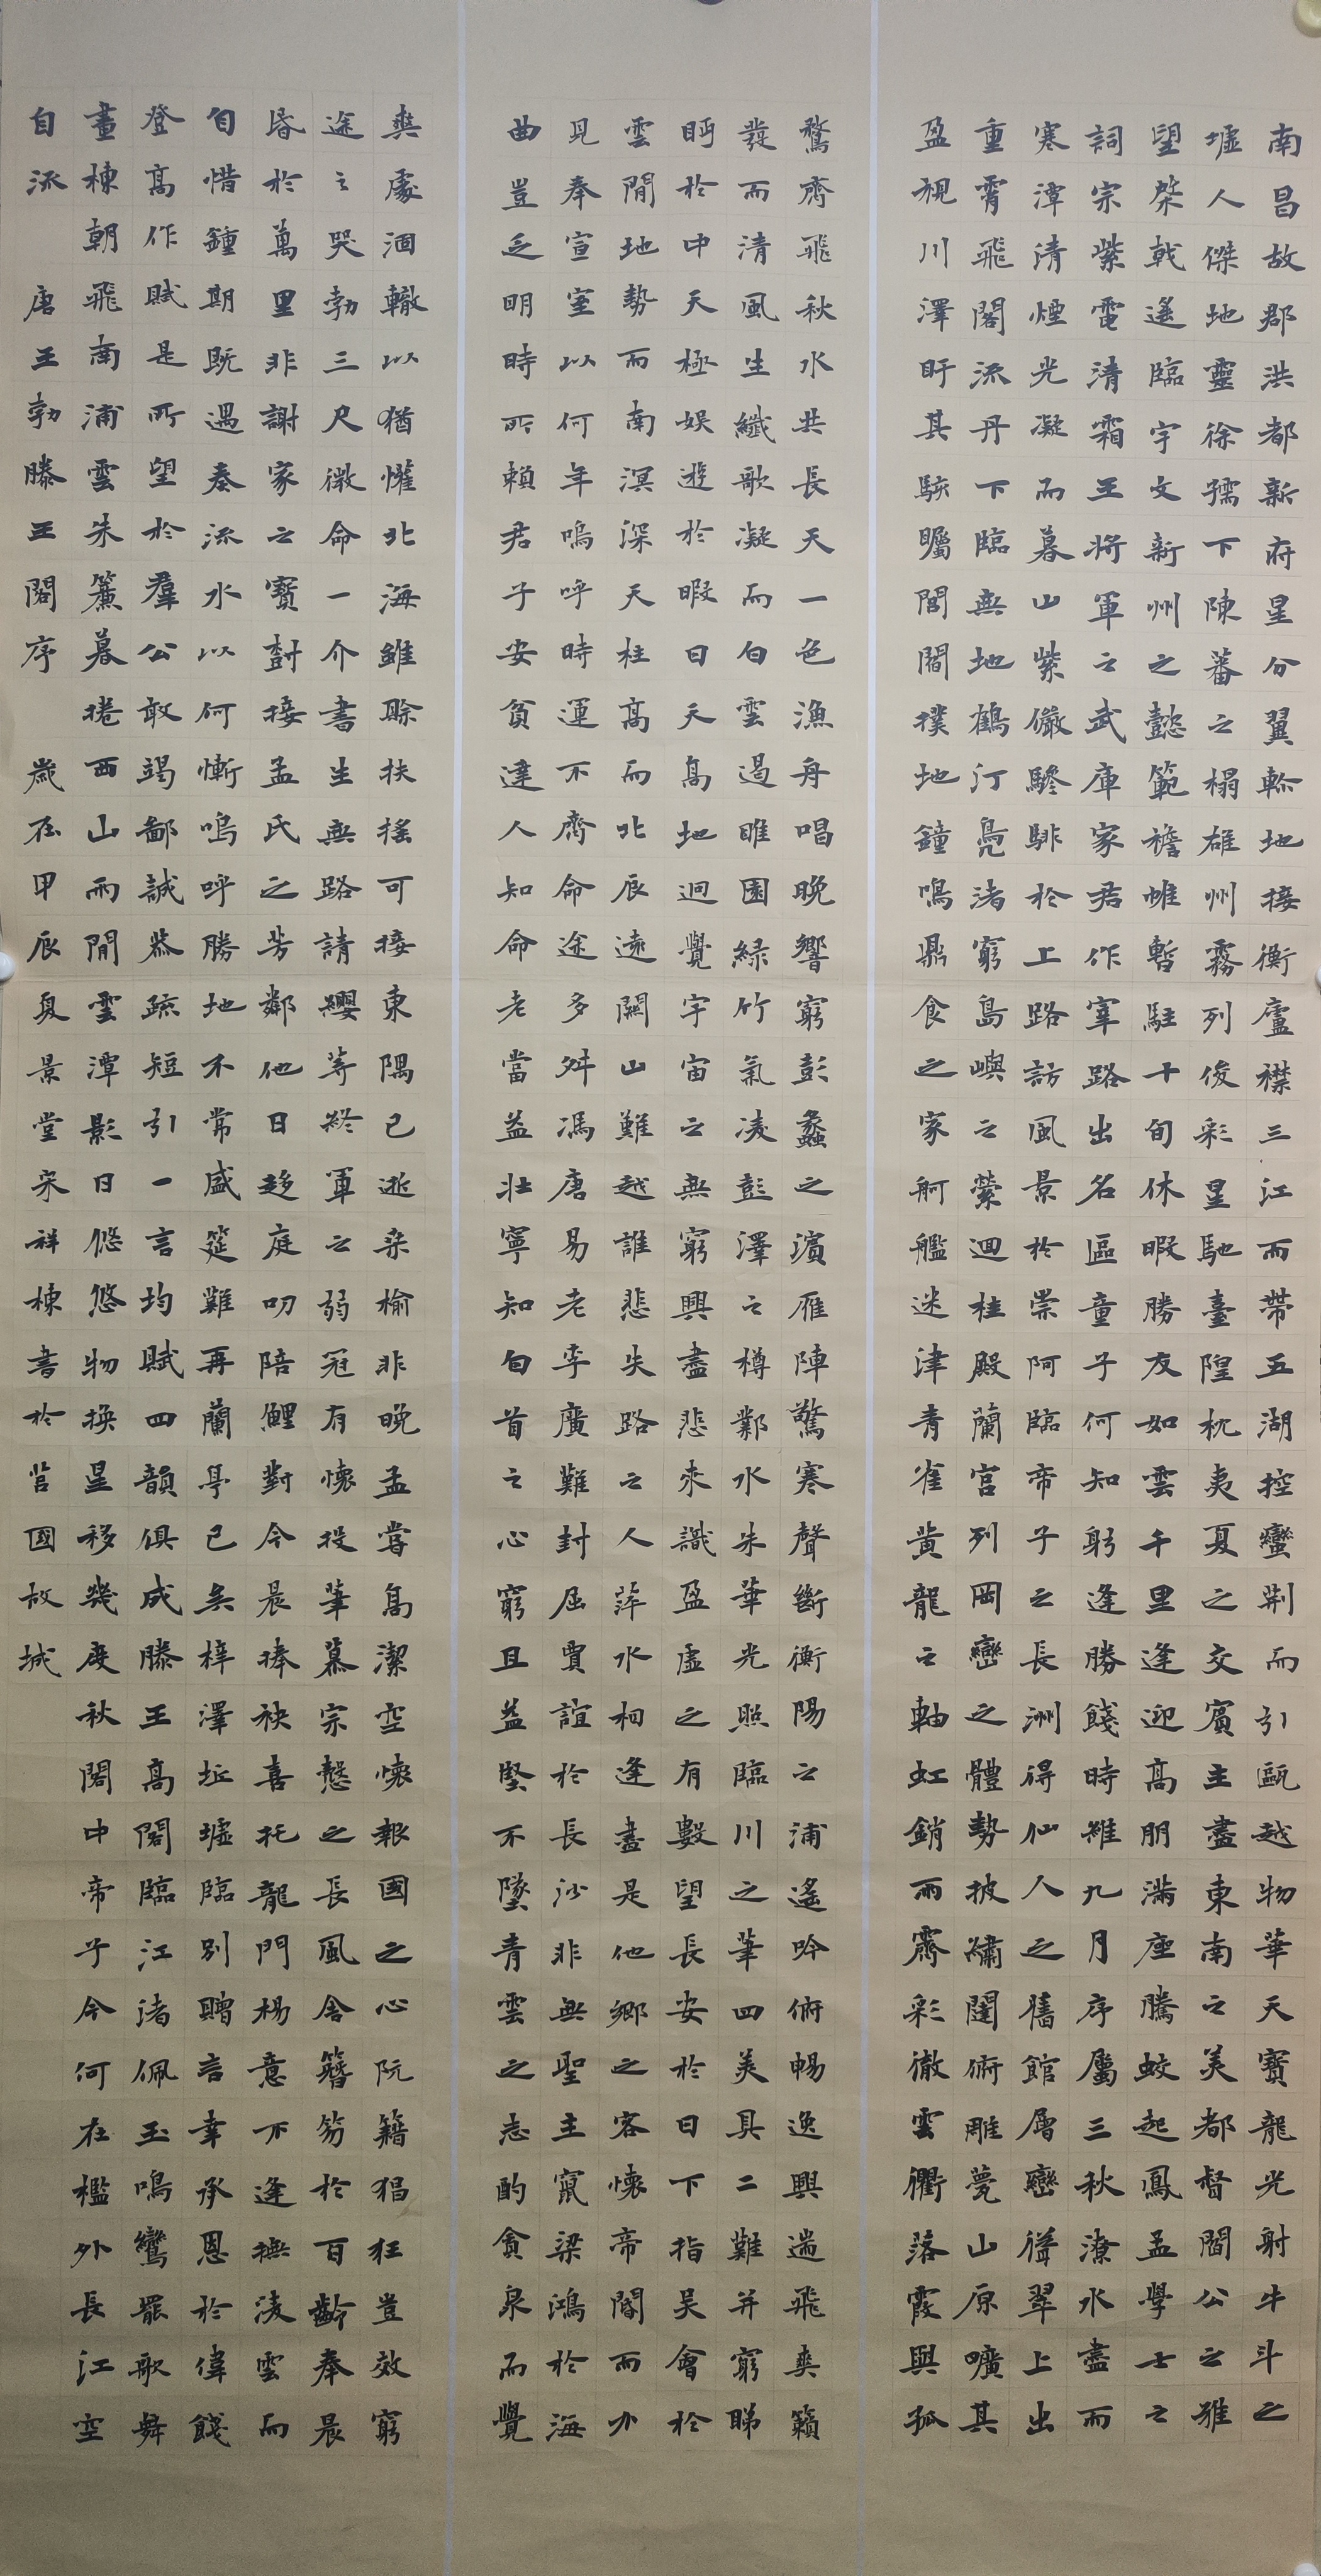 南昌故郡洪都新府星分翼軫地接衡廬襟三江而帶五湖控蠻荊而引甌越物華天寶龍光射牛斗之
墟人傑地靈徐孺下陳蕃之榻雄州霧列俊彩星馳臺隍枕夷夏之交賓主盡東南之美都督閻公之雅
望棨戟遙臨宇文新州之懿範襜帷暫駐十旬休暇勝友如雲千里逢迎高朋滿座騰蛟起鳳孟學士之
詞宗紫電清霜王將軍之武庫家君作宰路出名區童子何知躬逢勝餞時維九月序屬三秋潦水盡而
寒潭清煙光凝而暮山紫儼驂騑於上路訪風景於崇阿臨帝子之長洲得仙人之舊館層巒聳翠上出
重霄飛閣流丹下臨無地鶴汀鳧渚窮島嶼之縈迴桂殿蘭宮列岡巒之體勢披繡闥俯雕甍山原曠其
盈視川澤盱其駭矚閭閻撲地鐘鳴鼎食之家舸艦迷津青雀黃龍之軸虹銷雨霽彩徹雲衢落霞與孤
鶩齊飛秋水共長天一色漁舟唱晚響窮彭蠡之濱雁陣驚寒聲斷衡陽之浦遙吟俯暢逸興遄飛爽籟
發而清風生纖歌凝而白雲遏睢園綠竹氣凌彭澤之樽鄴水朱華光照臨川之筆四美具二難并窮睇
眄於中天極娛遊於暇日天高地迥覺宇宙之無窮興盡悲來識盈虛之有數望長安於日下指吳會於
雲間地勢而南溟深天柱高而北辰遠關山難越誰悲失路之人萍水相逢盡是他鄉之客懷帝閽而不
見奉宣室以何年嗚呼時運不齊命途多舛馮唐易老李廣難封屈賈誼於長沙非無聖主竄梁鴻於海
曲豈乏明時所賴君子安貧達人知命老當益壯寧知白首之心窮且益堅不墜青雲之志酌貪泉而覺
爽處涸轍以猶懽北海雖賒扶搖可接東隅已逝桑榆非晚孟嘗高潔空懷報國之心阮籍猖狂豈效窮
途之哭勃三尺微命一介書生無路請纓等終軍之弱冠有懷投筆慕宗愨之長風舍簪笏於百齡奉晨
昏於萬里非謝家之寶樹接孟氏之芳鄰他日趨庭叨陪鯉對今晨捧袂喜托龍門楊意不逢撫凌雲而
自惜鍾期既遇奏流水以何慚嗚呼勝地不常盛筵難再蘭亭已矣梓澤丘墟臨別贈言幸承恩於偉餞
登高作賦是所望於羣公敢竭鄙誠恭疏短引一言均賦四韻俱成滕王高閣臨江渚佩玉鳴鸞罷歌舞
畫棟朝飛南浦雲朱簾暮捲西山雨閒雲潭影日悠悠物換星移幾度秋閣中帝子今何在檻外長江空
自流 唐王勃滕王閣序 歲在甲辰夏景堂宋祥棟書於莒國故城